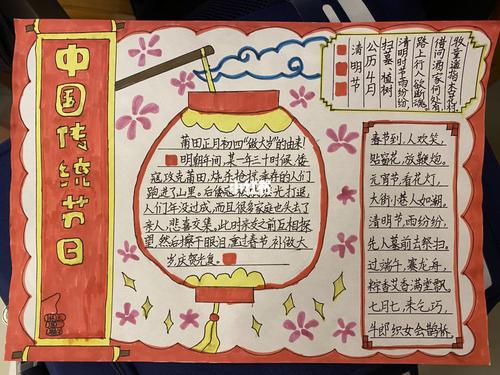 中国传统节日
莆田正月初四"做大岁"的由来!
明朝年间,某一年三十时候,倭
寇攻克莆田,烧杀抢掠,幸存的人们
跑进了山里。后倭寇
打退,
人们年没过成,而且很多家庭也失去了
亲人,悲喜交集,此时亲友之前互相探
望,然后擦干眼泪,重过春节,补做大
岁庆祝光复。
清明节
公历4月
扫墓、植树
清明时节雨纷纷,
路上行人欲断魂。
借问酒家何处有
牧童遥指杏花村。
春节到,人欢笑,
贴窗花,放鞭炮。
元宵节,看花灯,
大街小巷人如潮。
清明节,雨纷纷,
先人墓前去祭扫。
过端午,赛龙舟,
粽香艾香满堂飘。
七月七,来乞巧,
牛郎织女会鹊桥。